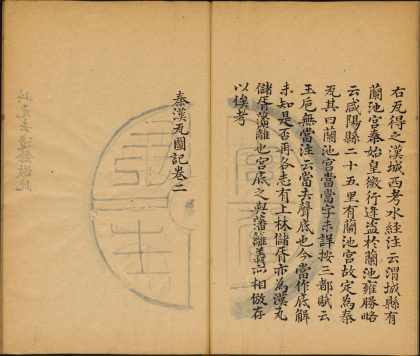 右瓦得之漢城西考水經注云渭城縣有
蘭池宮秦始皇微行逢盜於蘭池雍勝略
云咸陽縣二十五里有蘭池宮故定為秦
瓦其曰蘭池宮當當字未詳按三都賦云
玉巵無當注云當去聲底也今當作底解
未知是否再各志有上林儲胥亦為漢瓦
儲胥藩離也宮底之與藩離義相倣存
以俟考
秦漢瓦圖記卷二